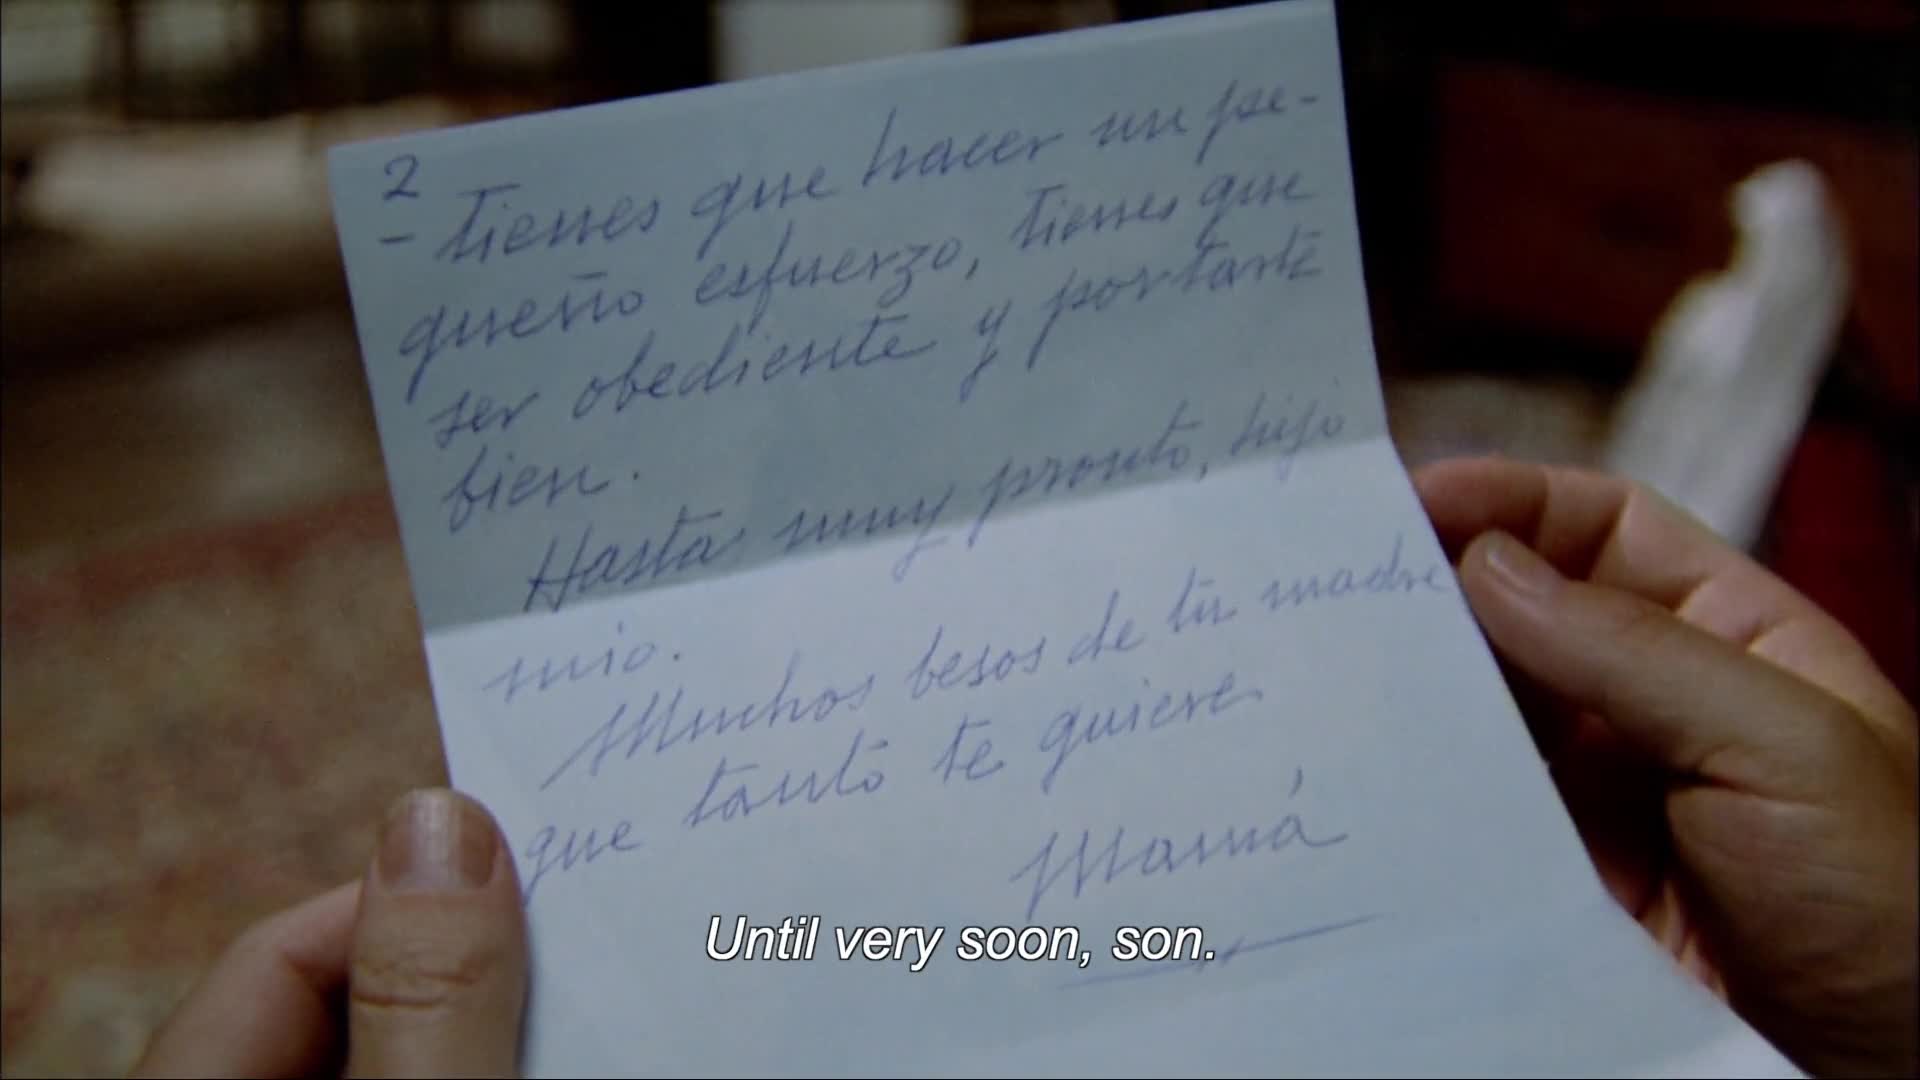 2
- tienes que hacer un pe-
queño esfuerzo, tienes que
ser obediente y portarte
bien.
Hasta muy pronto, hijo
mio.
Muchos besos de tu madre
que tanto te quiere
Mamá
Until very soon, son.